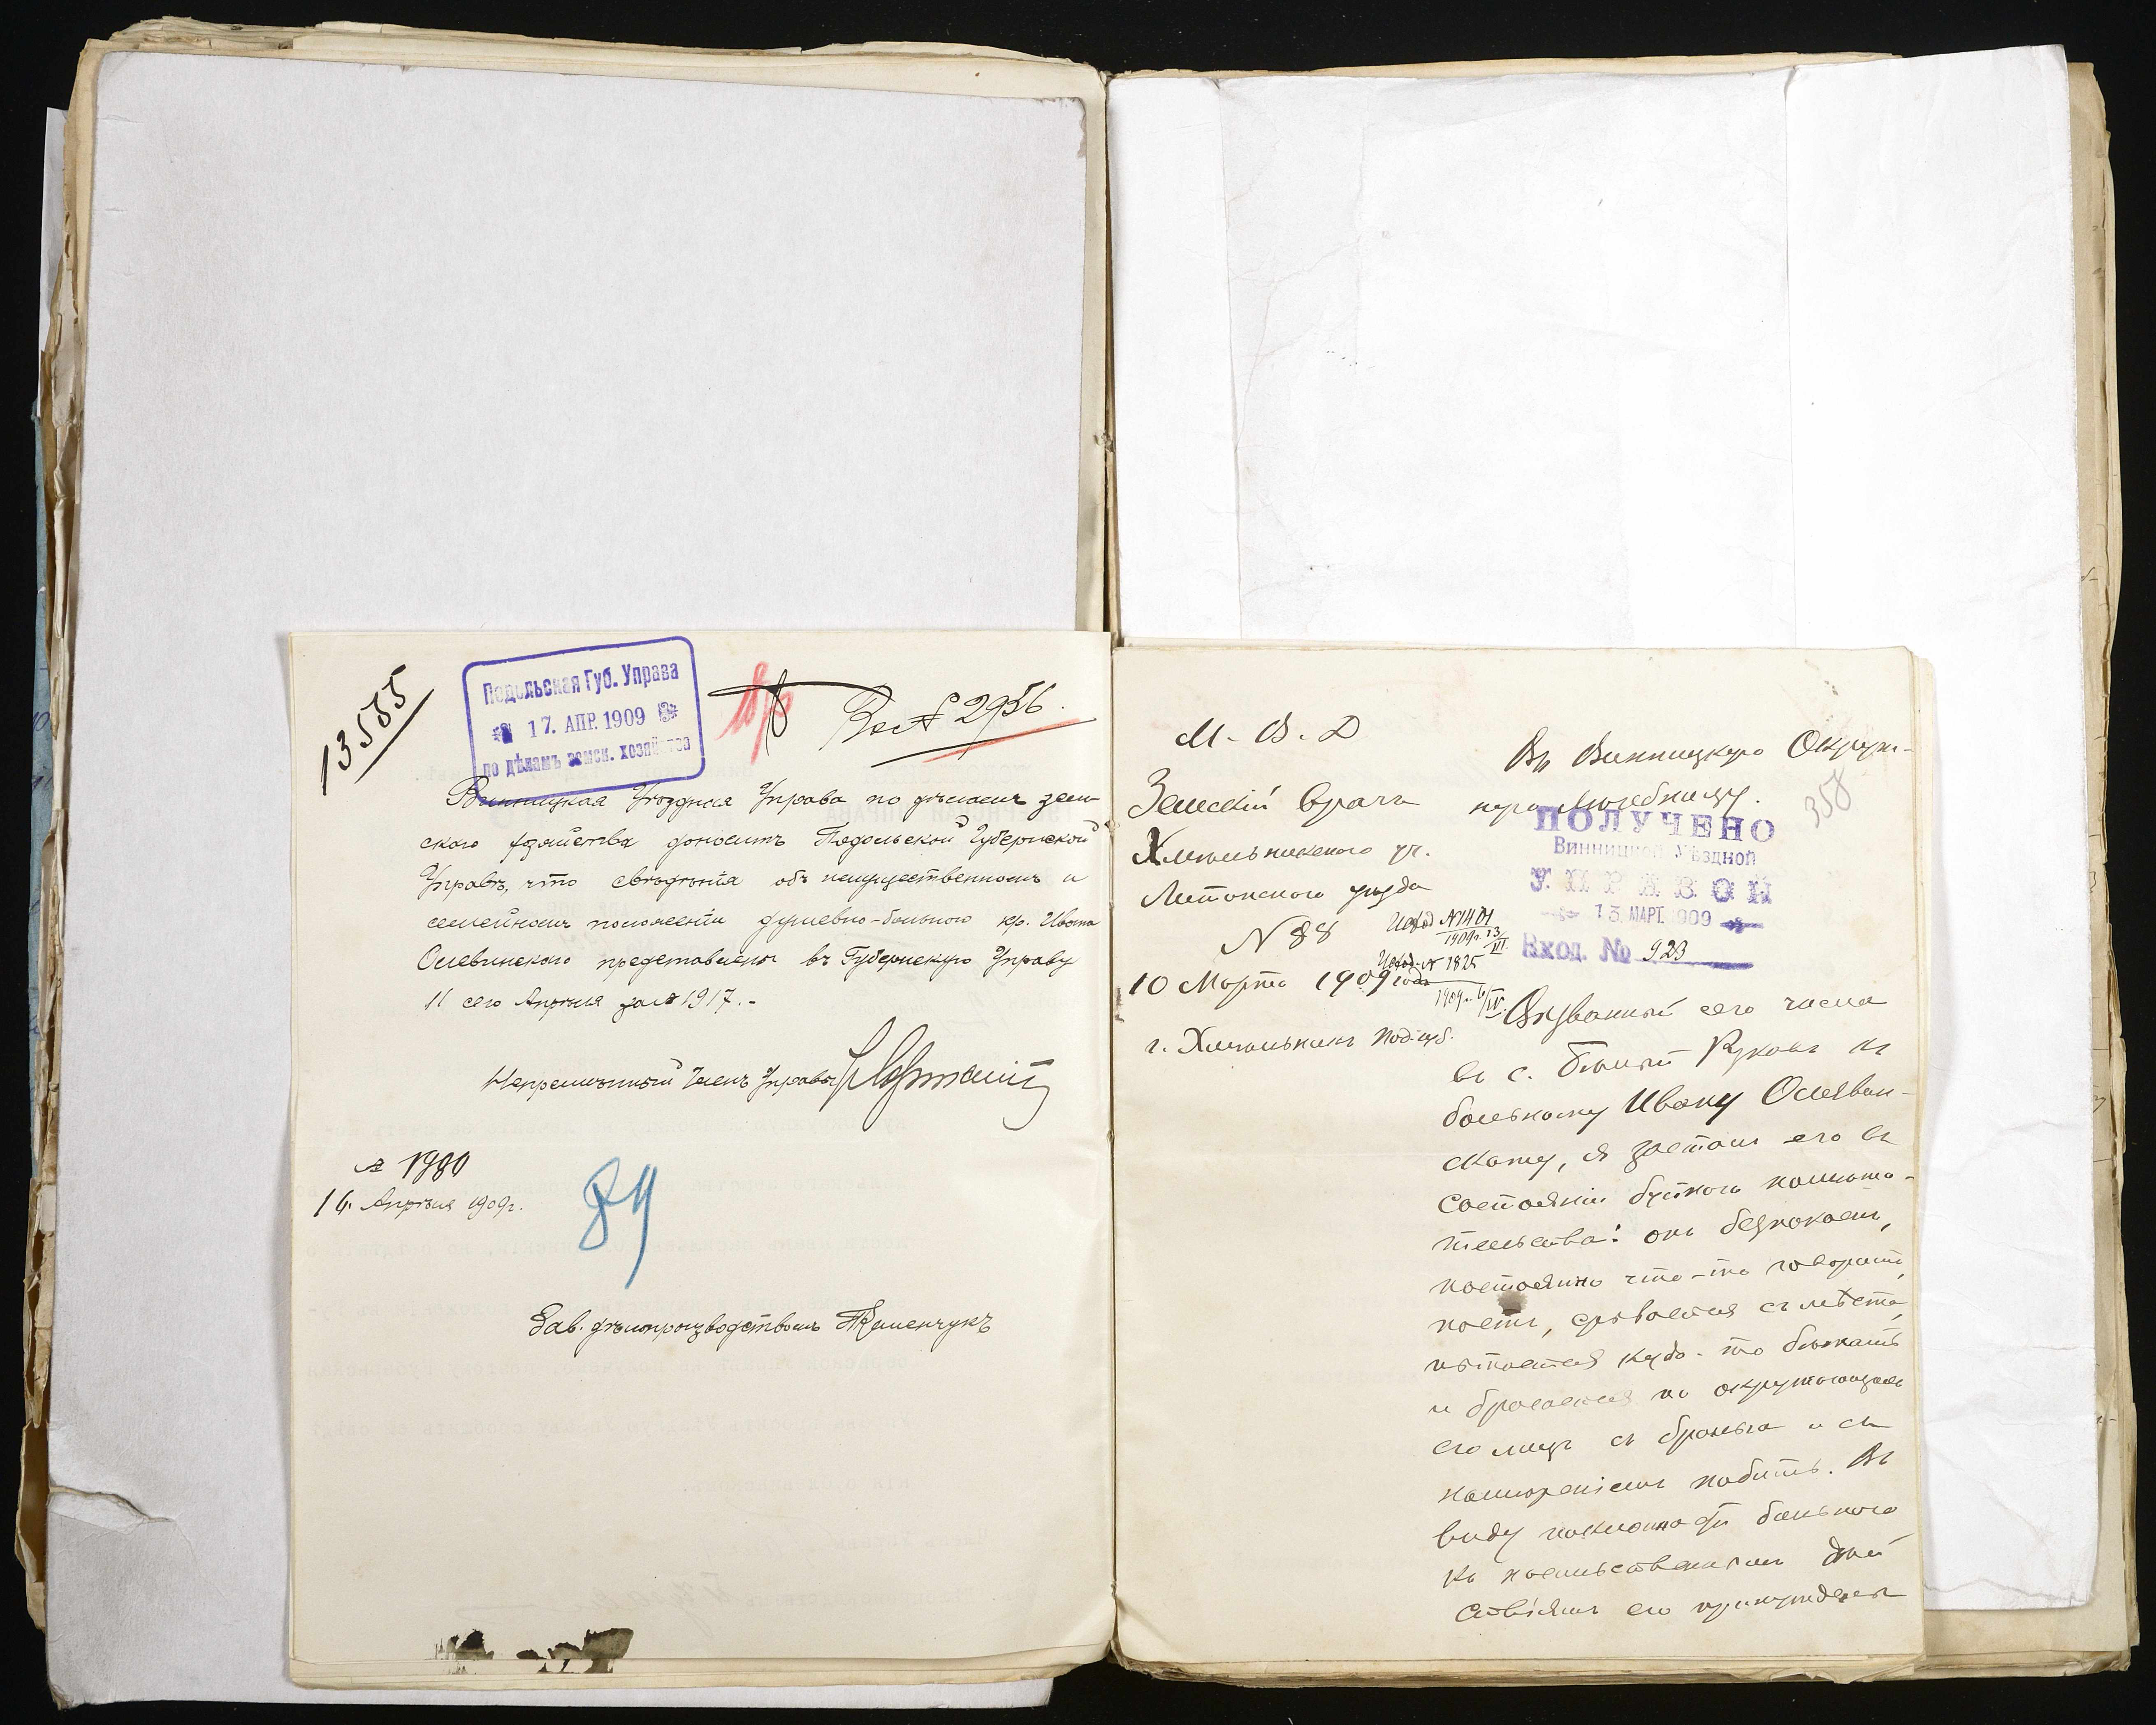 13585
Подольская Губ. Управа
17. АПР. 1909
по дѣламъ земск. хозяйства
№ 2956.
Винницкая Уѣздная Управа по дѣламъ зем-
ского хозяйства доноситъ Подольской Губернской
Управѣ, что свѣдѣнія объ имущественномъ и
семейномъ положеніи душевно-больного кр. Ивана
Олевинского представлены въ Губернскую Управу
11 сего Апрѣля за № 1917.-
Непремѣнный Членъ Управы
№ 1980
16 Апрѣля 1909 г.
Зав. дѣлопроизводствомъ
М. В. Д
Земскій врачъ
Хмѣльникского уч.
Литинского уѣзда
N 88
10 Марта 1909 года
г. Хмѣльникъ Под. губ.
Исход. № 1825
Въ Винницкую Окруж-
ную Лѣчебницу.
358
ПОЛУЧЕНО
Винницкой Уѣздной
УПРАВОЙ
13. МАРТ. 1909
Вход. № 923
Вызванный сего числа
въ с. Бѣлый Рукавъ къ
больному Ивану Олевин-
скому, я засталъ его въ
состояніи буйного помѣша-
тельства: онъ безпокоенъ,
постоянно что-то говоритъ,
поетъ, срывается съ мѣста,
пытается куда-то бѣжать
и бросается на окружающихъ
его лицъ съ бранью и съ
намѣреніемъ побить. Въ
виду наклонности больного
къ насильственнымъ дѣй
ствіямъ его